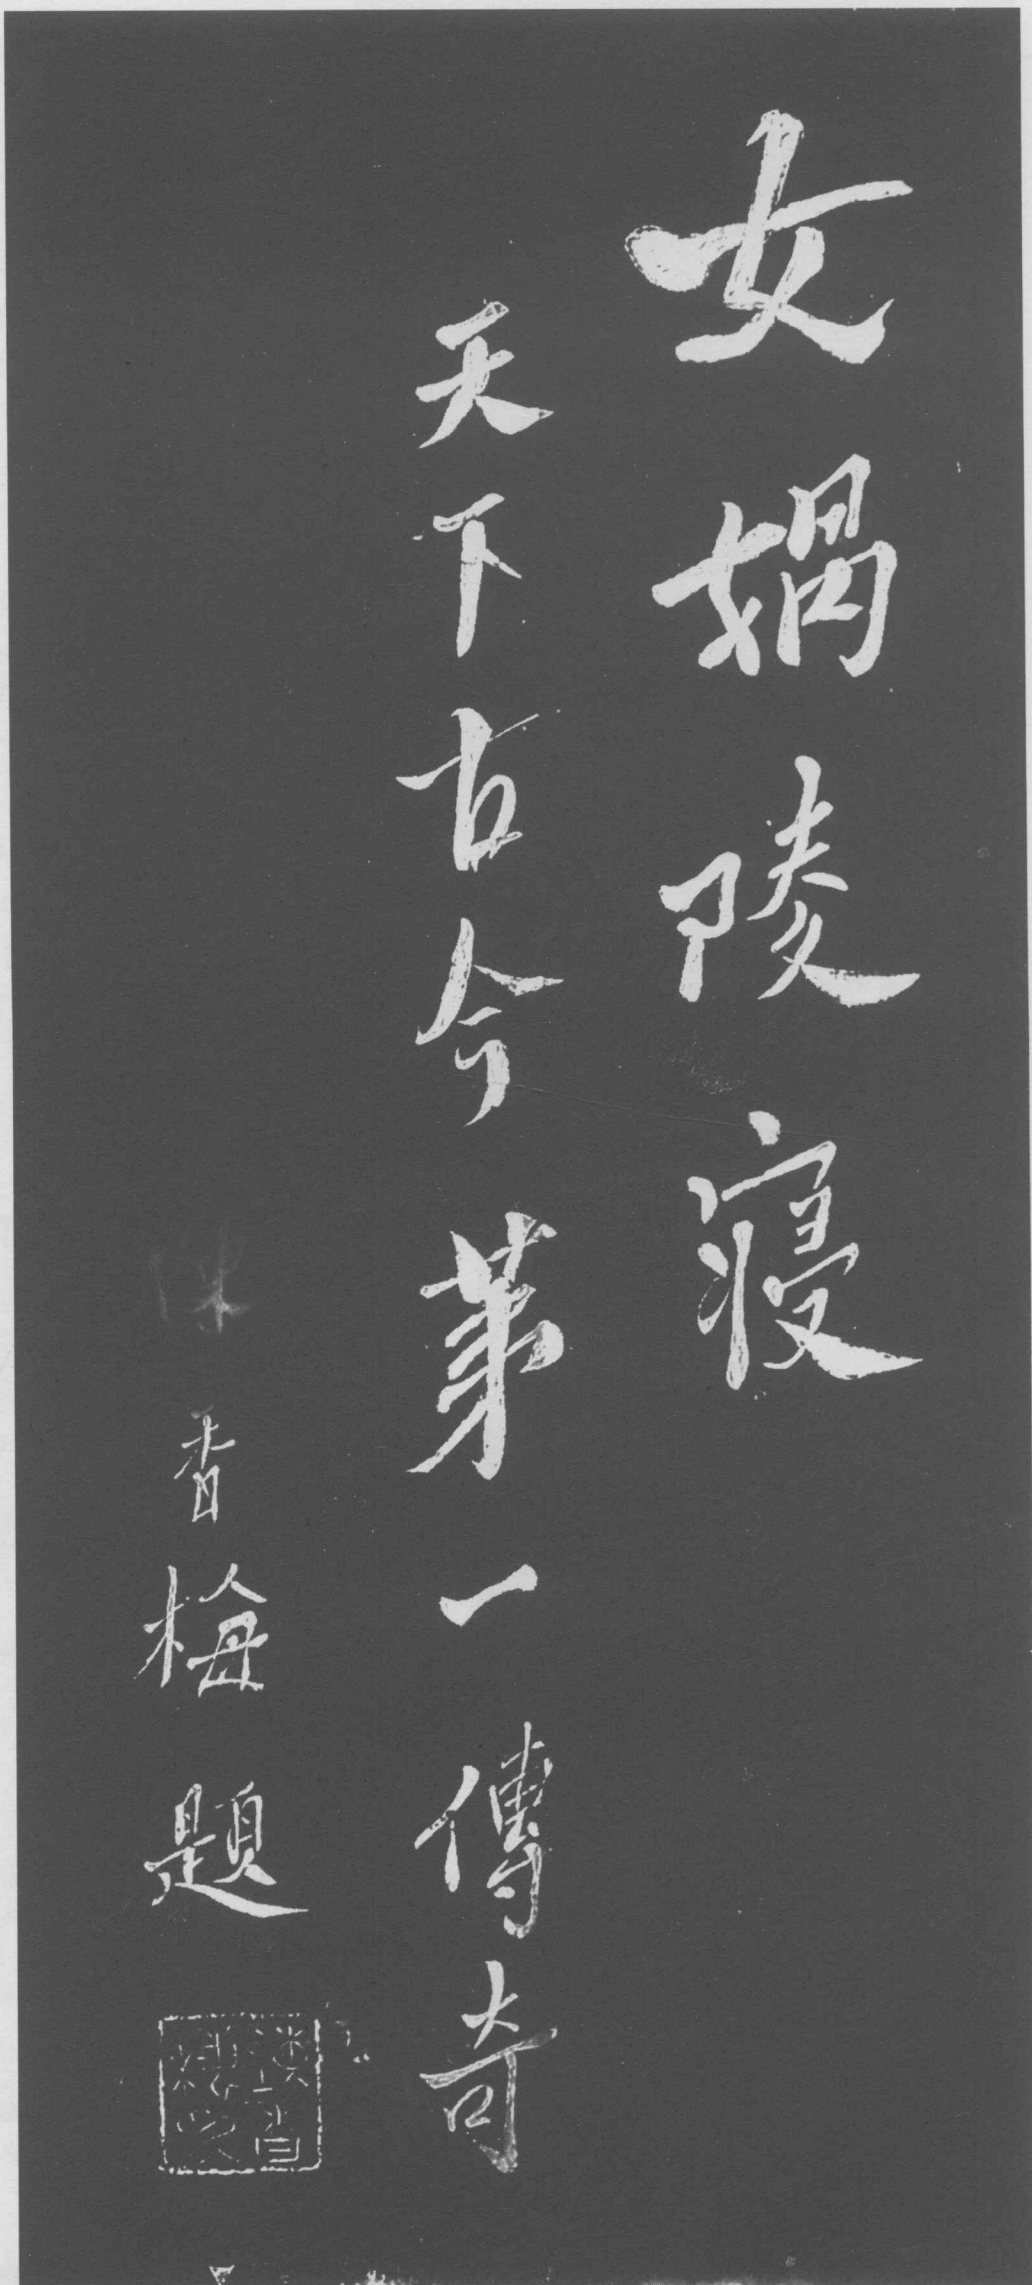 女媧陵寢
天下古今第一傳奇
陳香梅題